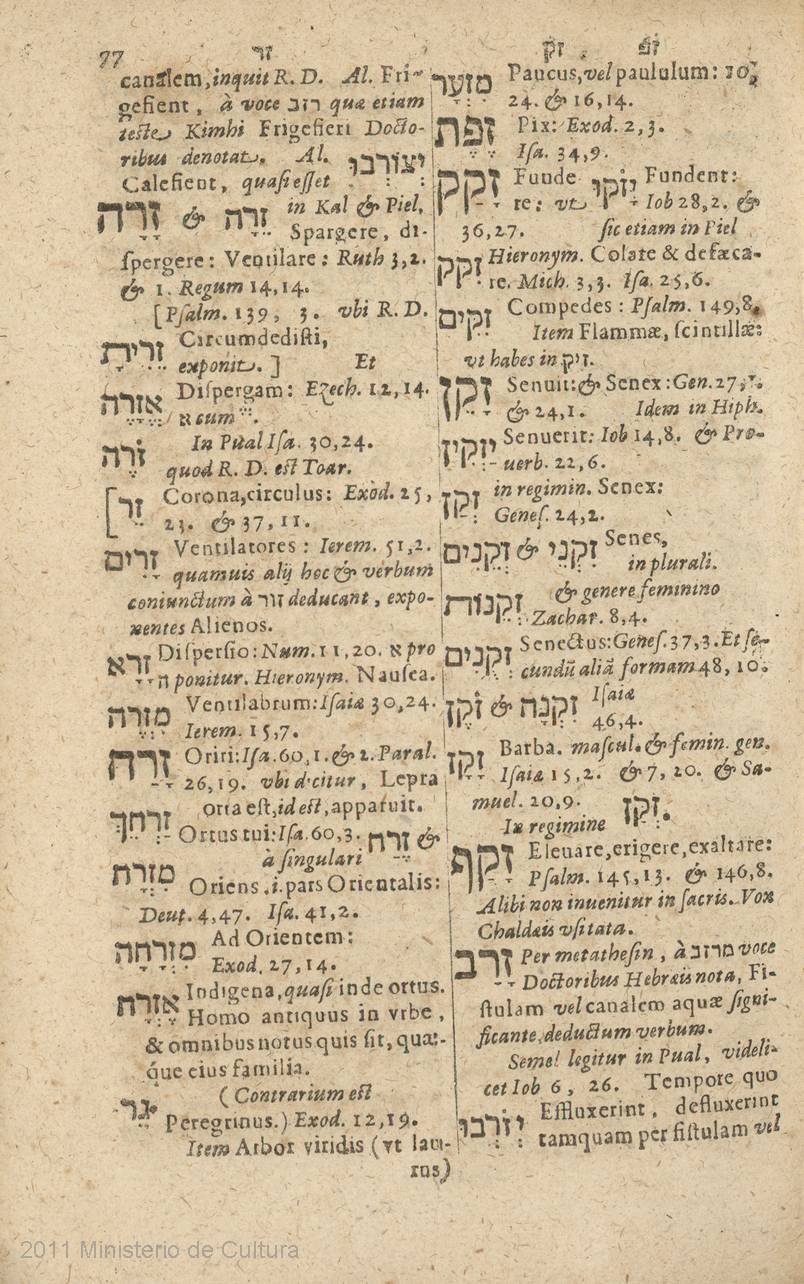 77 זר
זק זפ
מזער Paucus, vel paululum: 10,
24. & 16,14.
זפת Pix: Exod. 2,3.
Isa. 34,9.
זקק Funde יזקו Fundent:
re: vt Iob 28,2. &
36,27. sic etiam in Piel
זקק Hieronym. Colate & defæca-
re. Mich. 3,3. Isa. 25,6.
זקים Compedes: Psalm. 149,8.
Item Flammæ, scintillæ:
vt habes in זיק.
זקן Senuit: & Senex: Gen. 27,
& 24,1. Idem in Hiph.
יזקין Senuerit: Iob 14,8. & Pro-
uerb. 22,6.
זקן in regimin. Senex:
Genes. 24,2.
זקנים & זקני Senes,
in plurali.
זקנות & genere feminino
Zachar. 8,4.
זקנים Senectus: Genes. 37,3. Et se-
cundũ aliã formam 48, 10.
זקן & זקנה Isaiæ
46,4.
זקן Barba. mascul. & femin. gen.
Isaiæ 15,2. & 7, 20. & Sa-
muel. 20,9.
In regimine זקן.
זקף Eleuare, erigere, exaltare:
Psalm. 145,13. & 146,8.
Alibi non inuenitur in sacris. Vox
Chaldæis vsitata.
זרב Per metathesin, à מרזב voce
Doctoribus Hebræis nota, Fi-
stulam vel canalem aquæ signi-
ficante, deductum verbum.
Semel legitur in Pual, videli-
cet Iob 6, 26. Tempore quo
יזרבו Effluxerint, defluxerint
tamquam per fistulam vel
canalem, inquit R. D. Al. Fri-
gefient, à voce רזב quæ etiam
teste Kimhi Frigefieri Docto-
ribus denotat. Al. יצורבו
Calefient, quasi esset
זרה & זרה in Kal & Piel,
Spargere, di-
spergere: Ventilare: Ruth 3,2.
& 1. Regum 14,14.
[Psalm. 139, 3. vbi R. D.
זרית Circumdedisti,
exponit.] Et
אזרה Dispergam: Ezech. 12,14.
א cum
זרה In Pual Isa. 30,24.
quod R. D. est Toar.
[זר Corona, circulus: Exod. 25,
23. & 37,11.
זרים Ventilatores: Ierem. 51,2.
quamuis alij hoc & verbum
coniunctum à זור deducant, expo-
nentes Alienos.
זרא Dispersio: Num. 11,20. א pro
ה ponitur. Hieronym. Nausea.
מזרה Ventilabrum: Isaiæ 30,24.
Ierem. 15,7.
זרח Oriri: Isa. 60,1. & 2. Paral.
26,19. vbi dicitur, Lepra
orta est, id est, apparuit.
זרחך Ortus tui: Isa. 60,3. & זרח
à singulari
מזרח Oriens .i. pars Orientalis:
Deut. 4,47. Isa. 41,2.
מזרחה Ad Orientem:
Exod. 27,14.
אזרח Indigena, quasi inde ortus.
Homo antiquus in vrbe,
& omnibus notus quis sit, quæ-
que eius familia.
(Contrarium est
גר Peregrinus.) Exod. 12,19.
Item Arbor viridis (vt lau-
rus)
2011 Ministerio de Cultura